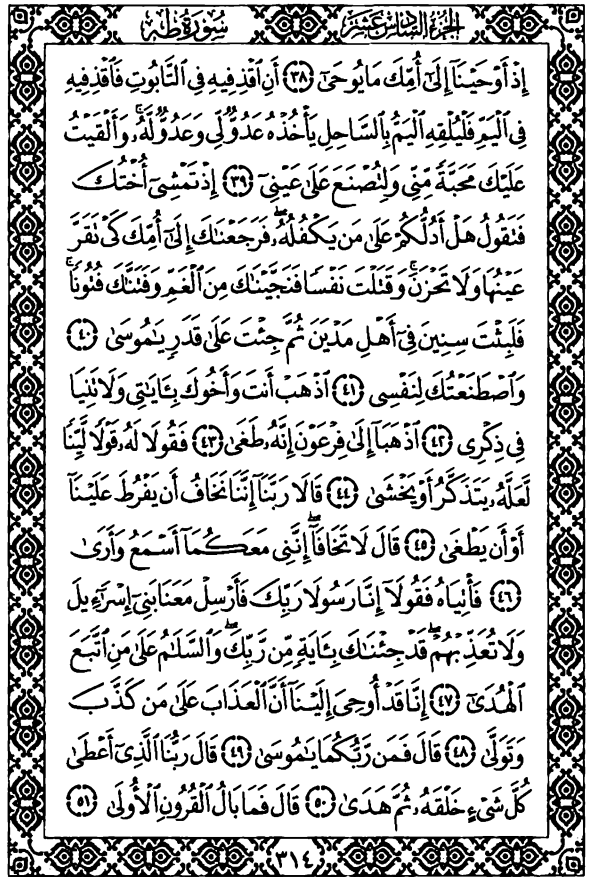 الجزء السادس عشر سورة طه
إِذْ أَوْحَيْنَآ إِلَىٰٓ أُمِّكَ مَا يُوحَىٰٓ ٣٨ أَنِ ٱقْذِفِيهِ فِى ٱلتَّابُوتِ فَٱقْذِفِيهِ
فِى ٱلْيَمِّ فَلْيُلْقِهِ ٱلْيَمُّ بِٱلسَّاحِلِ يَأْخُذْهُ عَدُوٌّ لِّى وَعَدُوٌّ لَّهُۥ ۚ وَأَلْقَيْتُ
عَلَيْكَ مَحَبَّةً مِّنِّى وَلِتُصْنَعَ عَلَىٰ عَيْنِىٓ ٣٩ إِذْ تَمْشِىٓ أُخْتُكَ
فَتَقُولُ هَلْ أَدُلُّكُمْ عَلَىٰ مَن يَكْفُلُهُۥ ۖ فَرَجَعْنَٰكَ إِلَىٰٓ أُمِّكَ كَىْ تَقَرَّ
عَيْنُهَا وَلَا تَحْزَنَ ۚ وَقَتَلْتَ نَفْسًا فَنَجَّيْنَٰكَ مِنَ ٱلْغَمِّ وَفَتَنَّٰكَ فُتُونًا ۚ
فَلَبِثْتَ سِنِينَ فِىٓ أَهْلِ مَدْيَنَ ثُمَّ جِئْتَ عَلَىٰ قَدَرٍ يَٰمُوسَىٰ ٤٠
وَٱصْطَنَعْتُكَ لِنَفْسِى ٤١ ٱذْهَبْ أَنتَ وَأَخُوكَ بِـَٔايَٰتِى وَلَا تَنِيَا
فِى ذِكْرِى ٤٢ ٱذْهَبَآ إِلَىٰ فِرْعَوْنَ إِنَّهُۥ طَغَىٰ ٤٣ فَقُولَا لَهُۥ قَوْلًا لَّيِّنًا
لَّعَلَّهُۥ يَتَذَكَّرُ أَوْ يَخْشَىٰ ٤٤ قَالَا رَبَّنَآ إِنَّنَا نَخَافُ أَن يَفْرُطَ عَلَيْنَآ
أَوْ أَن يَطْغَىٰ ٤٥ قَالَ لَا تَخَافَآ ۖ إِنَّنِى مَعَكُمَآ أَسْمَعُ وَأَرَىٰ
٤٦ فَأْتِيَاهُ فَقُولَآ إِنَّا رَسُولَا رَبِّكَ فَأَرْسِلْ مَعَنَا بَنِىٓ إِسْرَٰٓءِيلَ
وَلَا تُعَذِّبْهُمْ ۖ قَدْ جِئْنَٰكَ بِـَٔايَةٍ مِّن رَّبِّكَ ۖ وَٱلسَّلَٰمُ عَلَىٰ مَنِ ٱتَّبَعَ
ٱلْهُدَىٰٓ ٤٧ إِنَّا قَدْ أُوحِىَ إِلَيْنَآ أَنَّ ٱلْعَذَابَ عَلَىٰ مَن كَذَّبَ
وَتَوَلَّىٰ ٤٨ قَالَ فَمَن رَّبُّكُمَا يَٰمُوسَىٰ ٤٩ قَالَ رَبُّنَا ٱلَّذِىٓ أَعْطَىٰ
كُلَّ شَىْءٍ خَلْقَهُۥ ثُمَّ هَدَىٰ ٥٠ قَالَ فَمَا بَالُ ٱلْقُرُونِ ٱلْأُولَىٰ ٥١
٣١٤